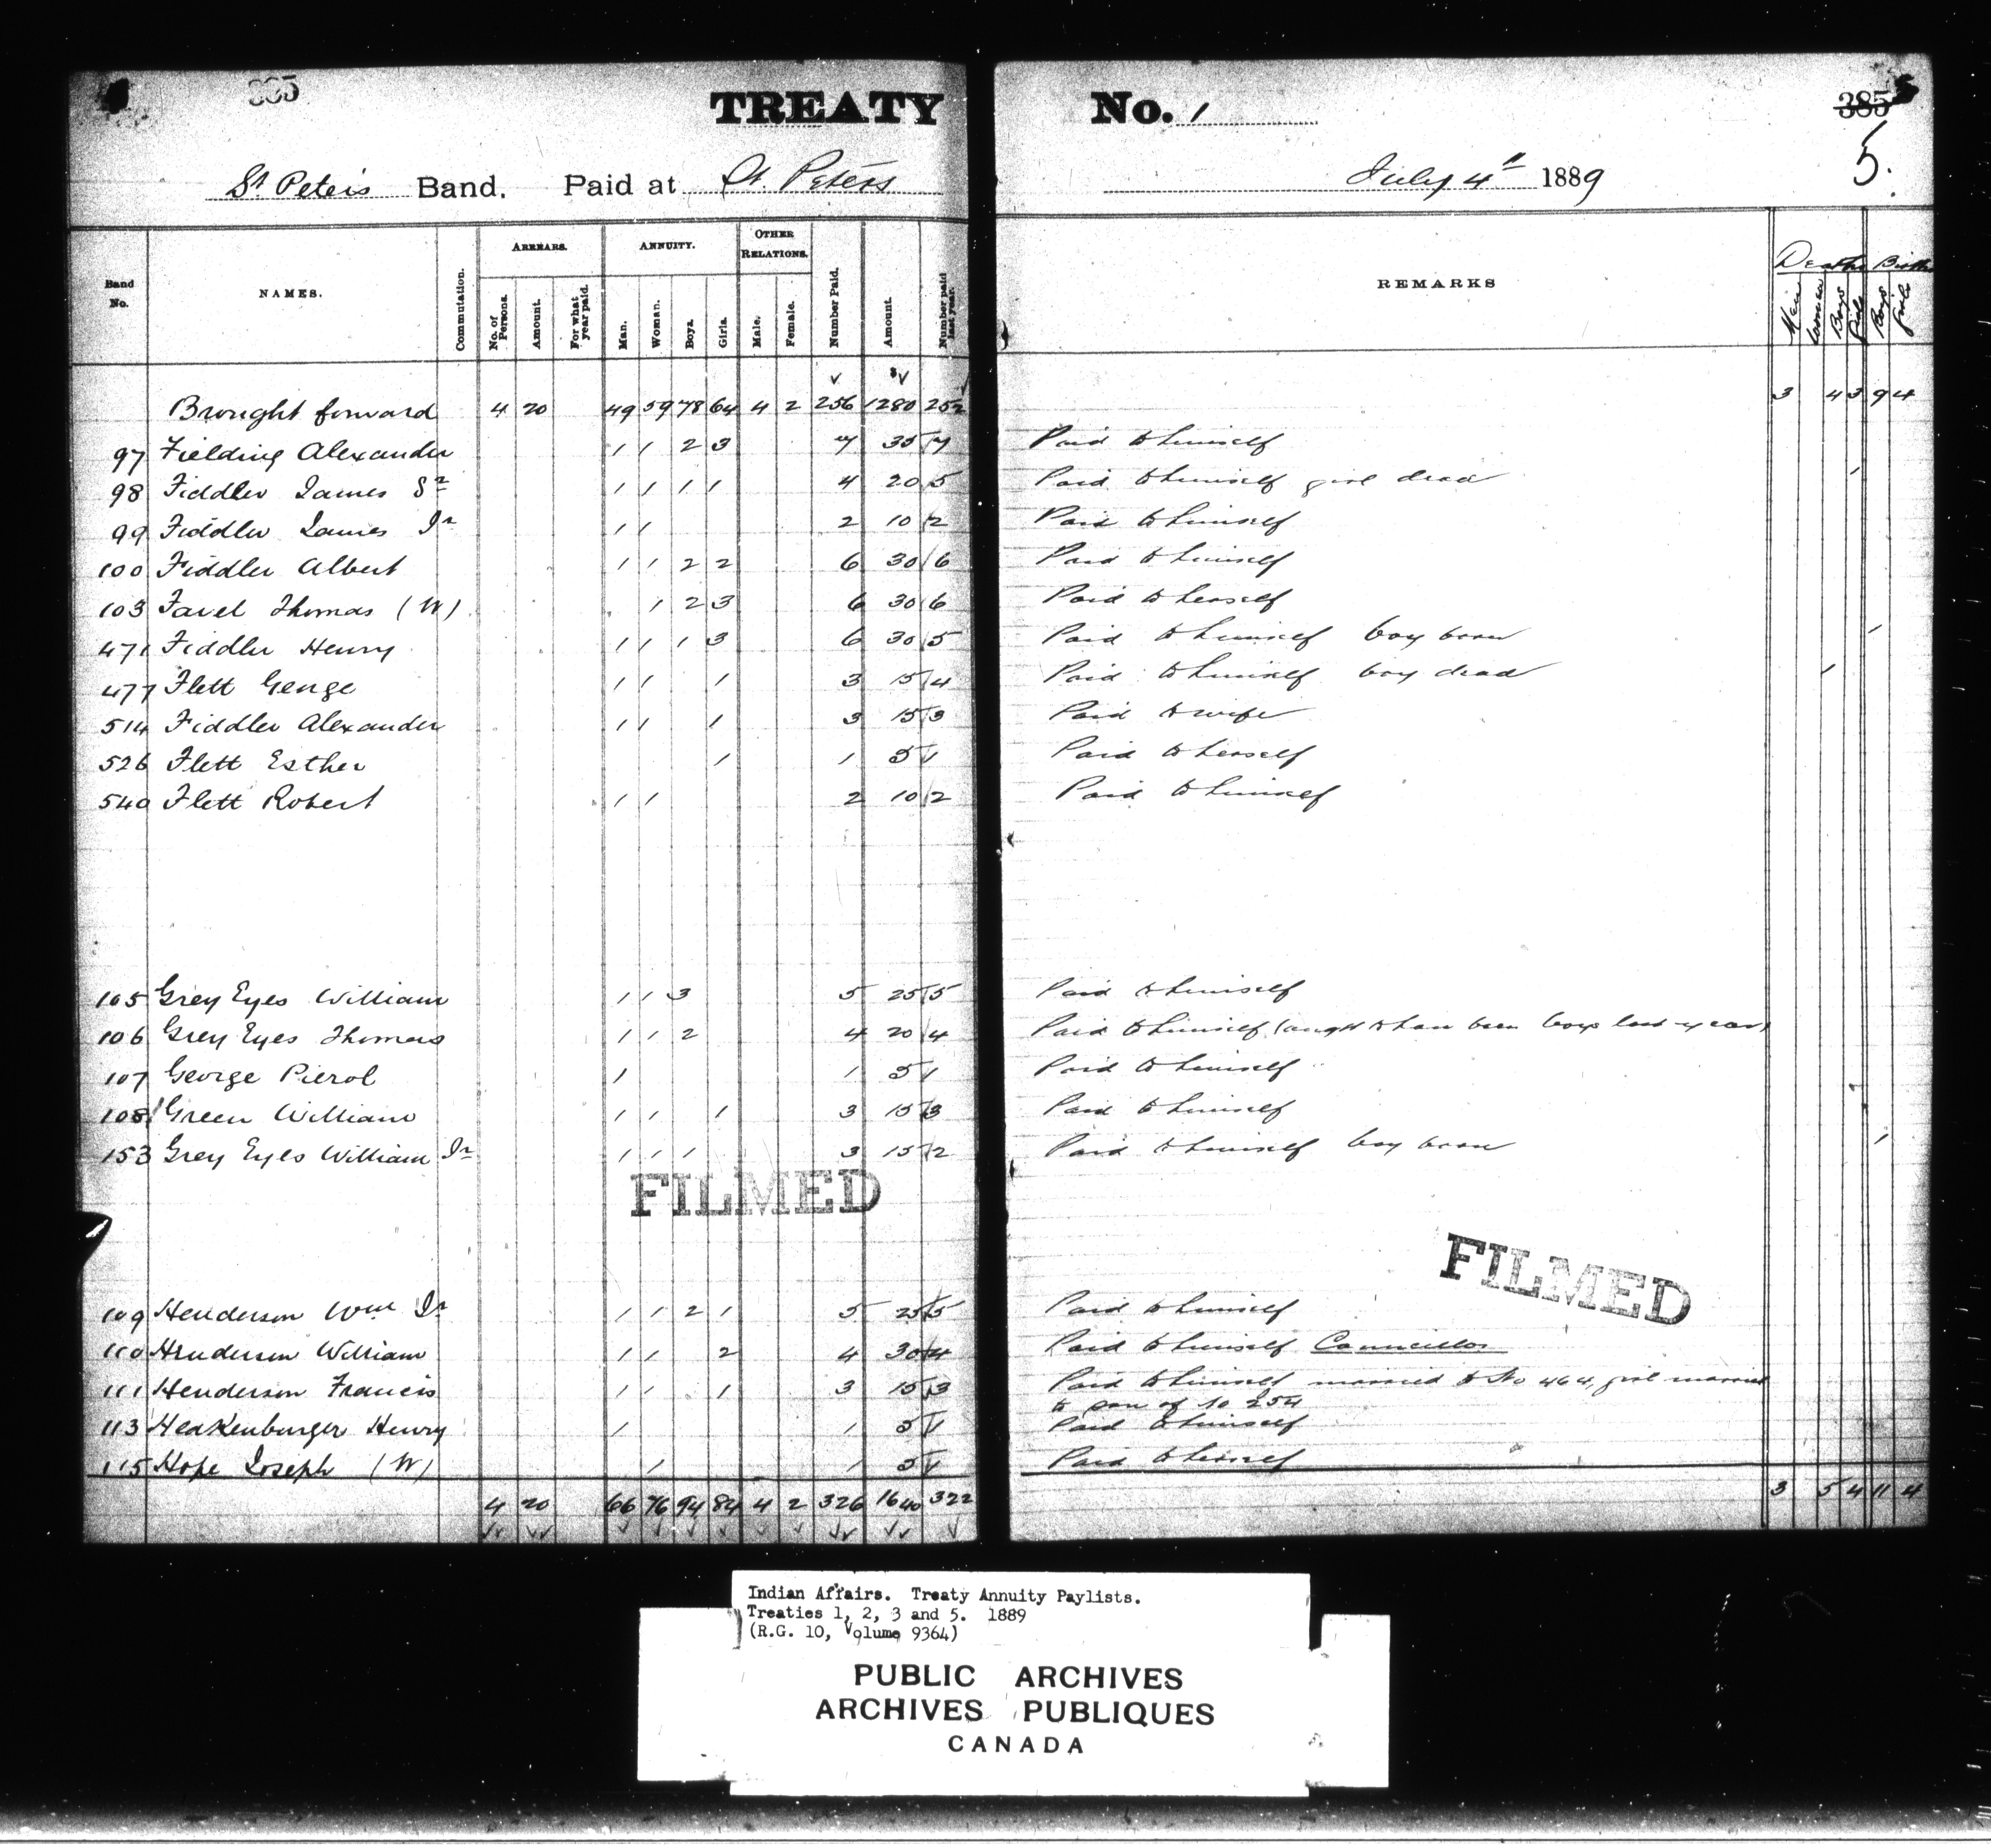 385
TREATY No. 1
385
5.
St Peter's Band. Paid at St. Peters July 4th 1889
Band No. NAMES. Commutation. ARREARS. No. of Persons. Amount. For what year paid. ANNUITY. Man. Woman. Boys. Girls. OTHER RELATIONS. Male. Female. Number Paid. Amount. Number paid last year. REMARKS Deaths Men Women Boys Girls Births Boys Girls
Brought forward 4 20 49 59 78 64 4 2 256 1280 252 3 4 3 9 4
97 Fielding Alexander 1 1 2 3 7 35 7 Paid to himself
98 Fiddler James Sr 1 1 1 1 4 20 5 Paid to himself girl dead 1
99 Fiddler James Jr 1 1 2 10 2 Paid to himself
100 Fiddler Albert 1 1 2 2 6 30 6 Paid to himself
103 Favel Thomas (W) 1 2 3 6 30 6 Paid to herself
471 Fiddler Henry 1 1 1 3 6 30 5 Paid to himself boy born 1
477 Flett George 1 1 1 3 15 4 Paid to himself boy dead 1
514 Fiddler Alexander 1 1 1 3 15 3 Paid to wife
526 Flett Esther 1 1 5 1 Paid to herself
540 Flett Robert 1 1 2 10 2 Paid to himself
105 Grey Eyes William 1 1 3 5 25 5 Paid to himself
106 Grey Eyes Thomas 1 1 2 4 20 4 Paid to himself (ought to have been boys last year)
107 George Pierol 1 1 5 1 Paid to himself
108 Green William 1 1 1 3 15 3 Paid to himself
153 Grey Eyes William Jr 1 1 1 3 15 2 Paid to himself boy born 1
FILMED
FILMED
109 Henderson Wm Jr 1 1 2 1 5 25 5 Paid to himself
110 Henderson William 1 1 2 4 30 4 Paid to himself Councillor
111 Henderson Francis 1 1 1 3 15 3 Paid to himself married to No 464, girl married
to son of No 254
113 Heakenburger Henry 1 1 5 1 Paid to himself
115 Hope Joseph (W) 1 1 5 1 Paid to herself
4 20 66 76 94 84 4 2 326 1640 322 3 5 4 11 4
Indian Affairs. Treaty Annuity Paylists.
Treaties 1, 2, 3 and 5. 1889
(R.G. 10, Volume 9364)
PUBLIC ARCHIVES
ARCHIVES PUBLIQUES
CANADA